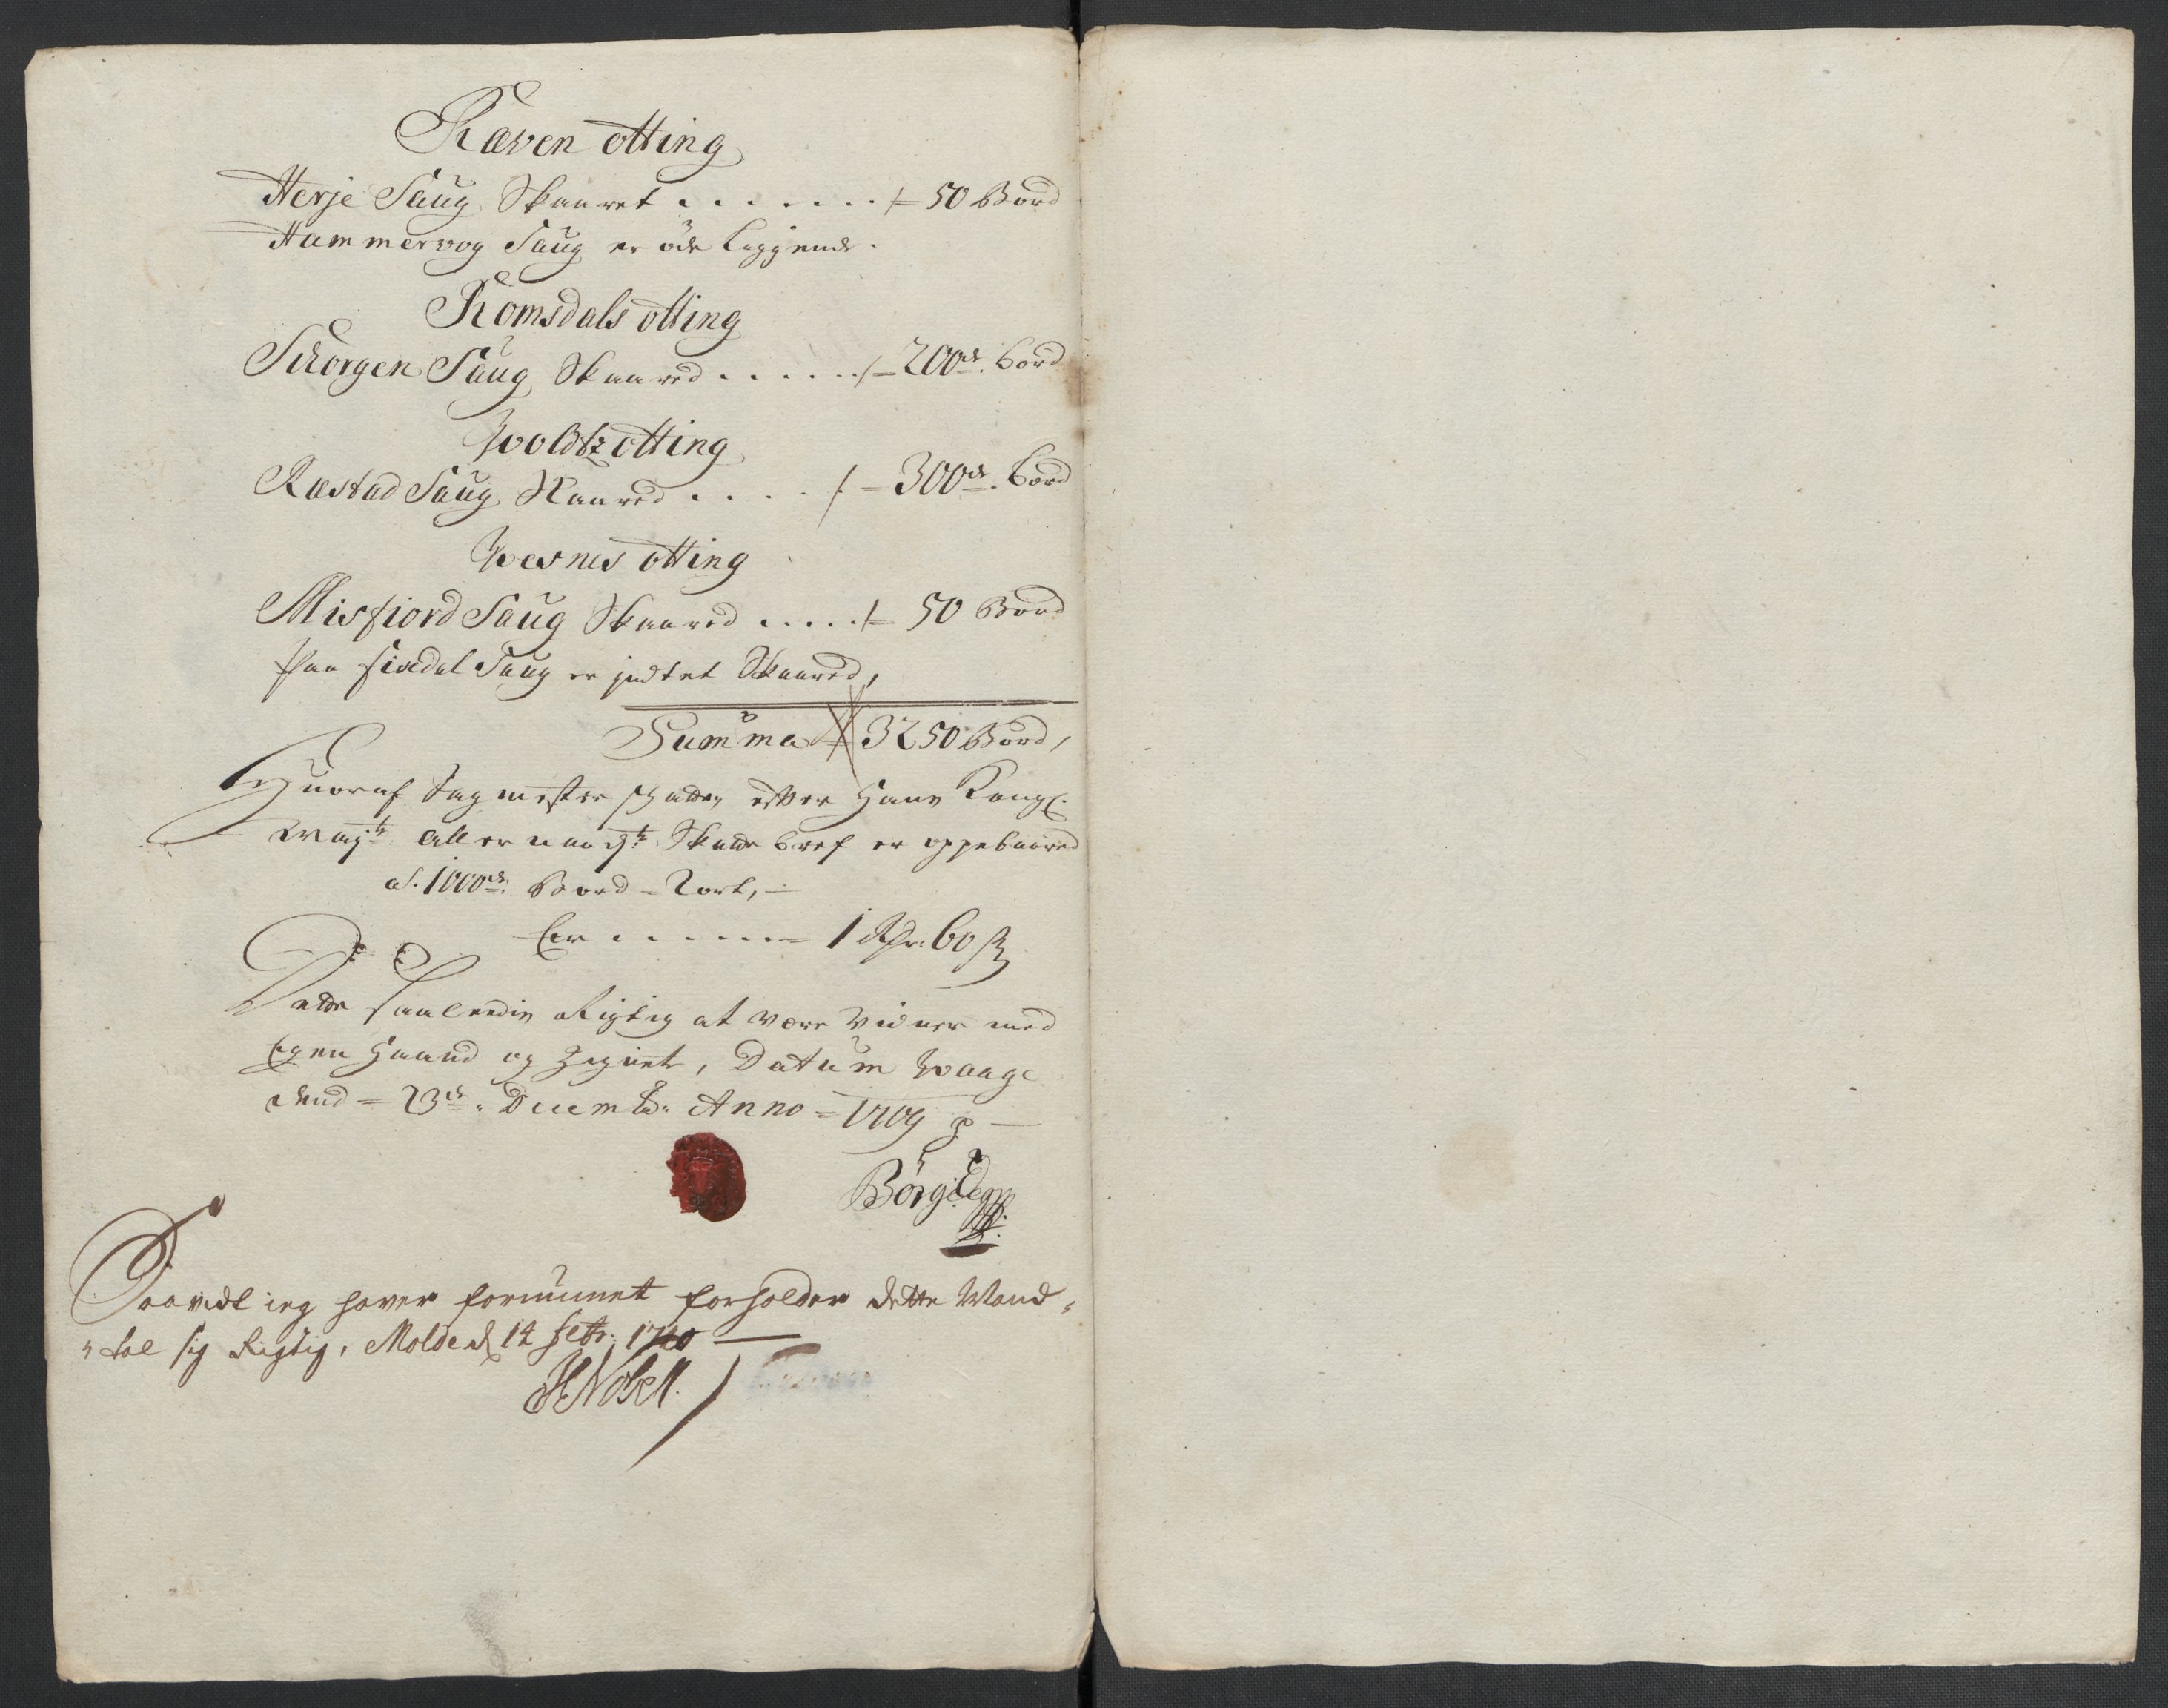 Ræven otting
Herje Saug Skaaret . . . . . . . 50 Bord
Hammervog Saug er öde liggende.
Romsdals otting
Schorgen Saug Skaared . . . . . . 200de. bord
Woldtz otting
Ræstad Saug Skaared . . . . . 300de. bord
Wesnes otting
Misfiord Saug Skaared . . . . . 50 Bord
Paa Siredal Saug er indtet Skaared,
Summa 3250 Bord,
Huoraf Sagmester efter Hans Kongl.
May:tz Aller naadgt: Skatte bref er oppebaared
af 1000de: Bord = 2 ort,
Er . . . . . . = 1 Rdr: 60 s
Dette saaledis Rigtig at være Vidner med
Egen Haand og Zignet, Datum Waage
dend = 23de: Decemb: Anno = 1709
Saavidt ieg haver fornummet forholder dette Mand„
„tal sig Rigtig, Molde d 14 1710
HNobell.